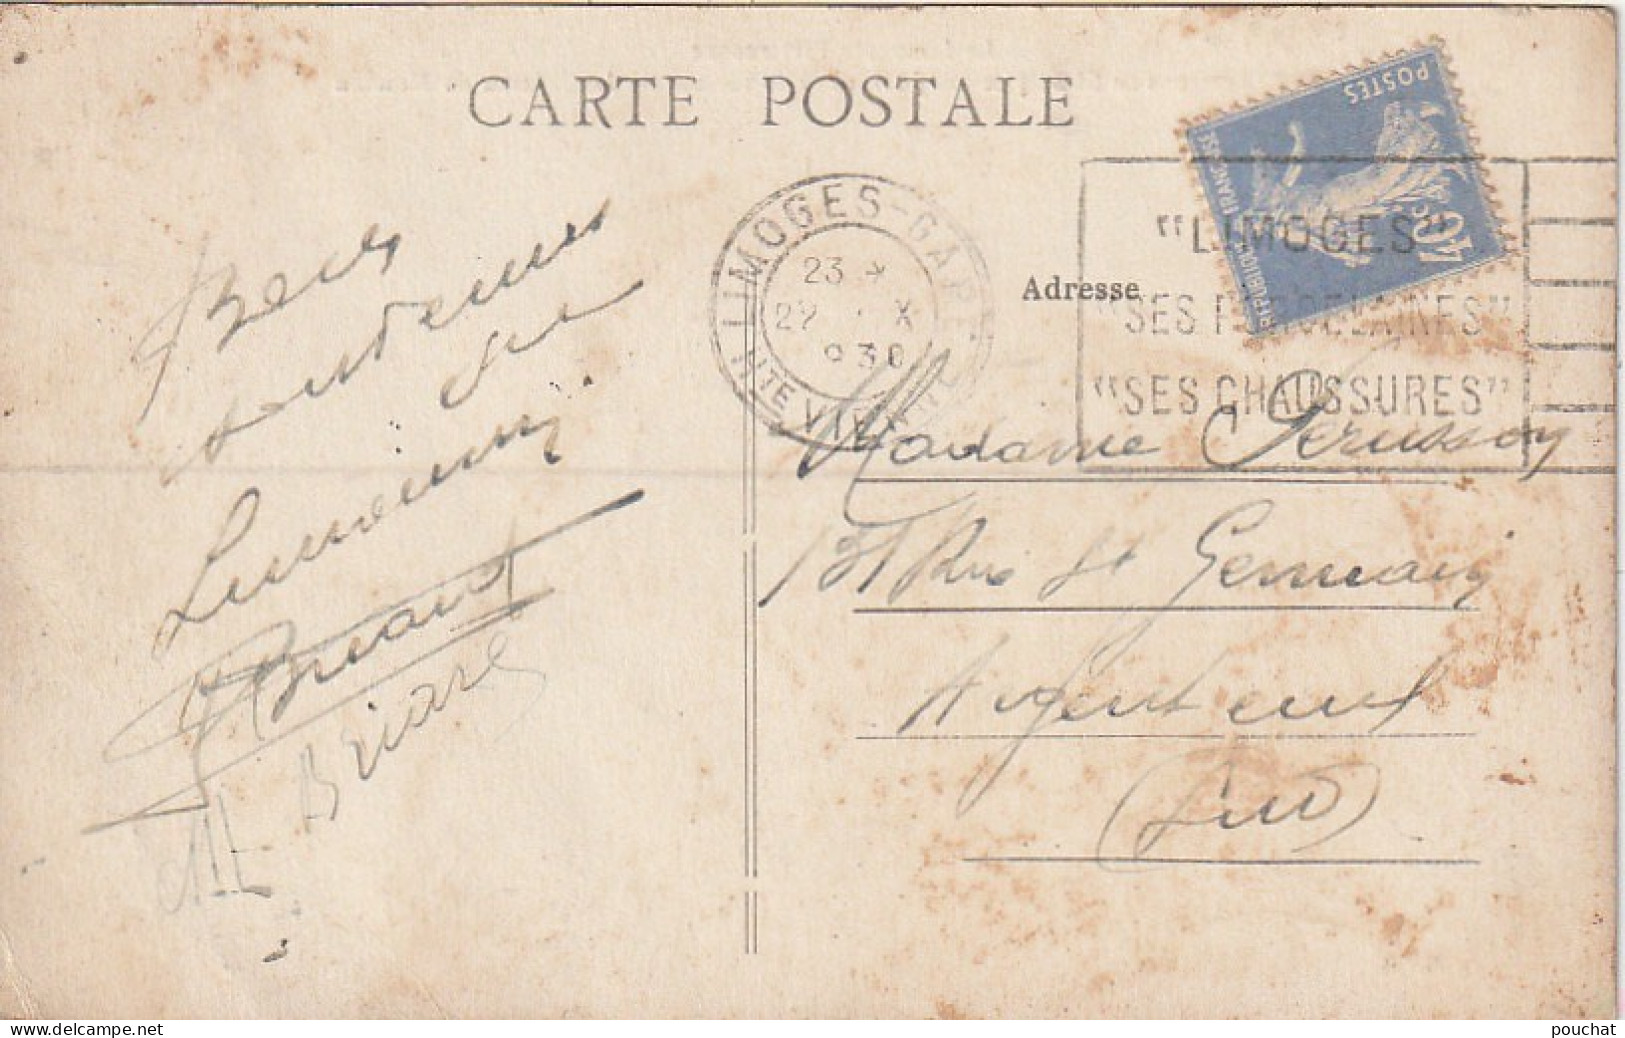 CARTE POSTALE
POSTES
RÉPUBLIQUE FRANÇAISE
40c
LIMOGES-GARE
23
22 X
930
HTE VIENNE
"LIMOGES"
"SES PORCELAINES"
"SES CHAUSSURES"
Adresse
Bons
souvenirs
du
Limousin
Briand
Briand
Madame Perusson
131 Rue St Germain
Argenteuil
(S&O)
www.delcampe.net
pouchat